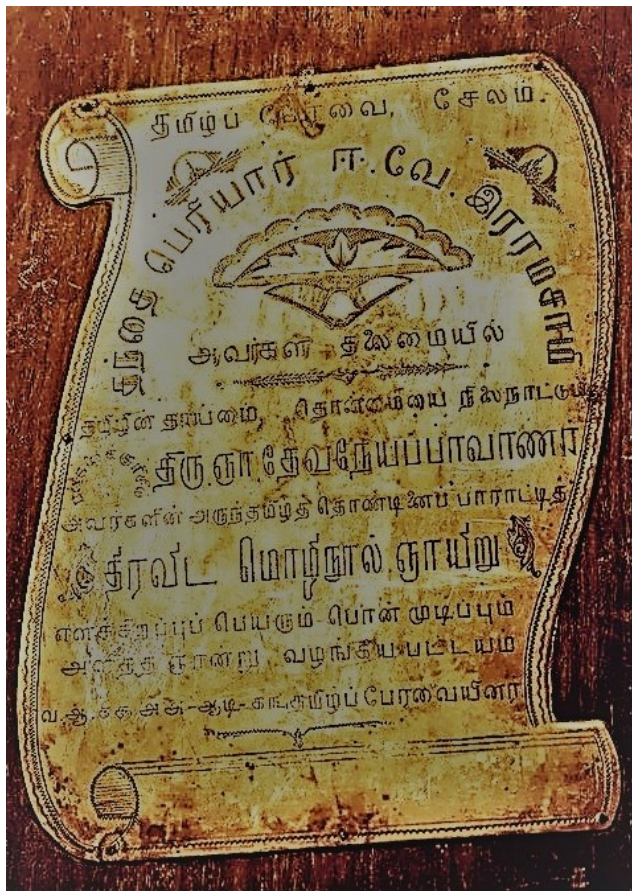 தமிழ்ப் பேரவை, சேலம்.
தந்தை பெரியார் ஈ.வே. இராமசாமி
அவர்கள் தலைமையில்
தமிழின் தாய்மை, தொன்மையை நிலைநாட்டும்
திரு. ஞா. தேவநேயப்பாவாணர்
அவர்களின் அருந்தமிழ்த் தொண்டினைப் பாராட்டித்
திரவிட மொழிநூல் ஞாயிறு
எனச்சிறப்புப் பெயரும் பொன் முடிப்பும்
அளித்த ஞான்று வழங்கிய பட்டயம்
தமிழ்ப் பேரவையினர்